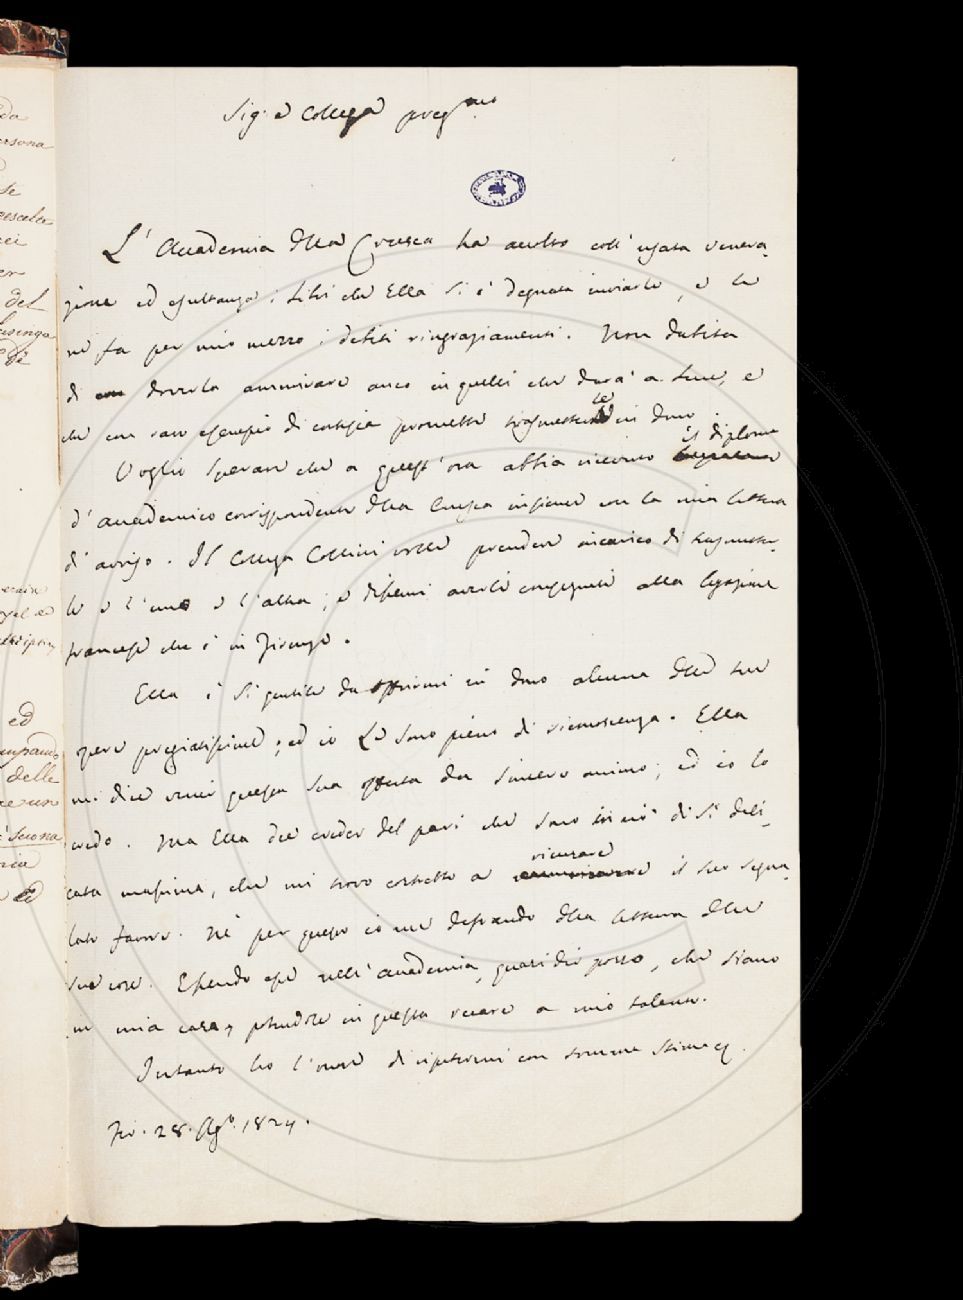 Sig.e Collega preg.mo
L'Accademia della Crusca ha accolto coll'usata venera-
zione ed esultanza i libri che Ella si è degnata inviarle, e le
ne fa per mio mezzo i debiti ringraziamenti. Non dubita
di doverla ammirare anco in quelli che darà a luce, e
che con raro esempio di cortesia promette trasmetterle in dono.
Voglio sperare che a quest'ora abbia ricevuto il diploma
d'accademico corrispondente della Crusca insieme con la mia lettera
d'avviso. Il Collega Collini volle prendere incarico di trasmetter-
le e l'uno e l'altra; e dissemi averli consegnati alla legazione
francese che è in Firenze.
Ella è sì gentile da offrirmi in dono alcune delle sue
opere pregiatissime; ed io Le sono pieno di riconoscenza. Ella
mi dice venir questa sua offerta da sincero animo; ed io lo
credo. Ma Ella dee creder del pari che sono in ciò di sì deli-
cata massima, che mi trovo costretto a ricusare il suo segna-
lato favore. Nè per questo io me defraudo della lettura delle
sue cose. Essendo esse nell'accademia, quasi dir posso, che siano
in mia casa, potendole in questa recare a mio talento.
Intanto ho l'onore di ripetermi con somma stima ec.
Fir. 28. Ag.o 1824.
ed
delle
del